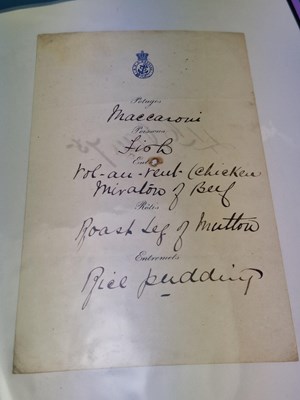 Potages
Maccaroni
Poissons
Fish
Vol-au-vent (Chicken
Miraton of Beef
Rôtis
Roast Leg of Mutton
Entremets
Rice pudding